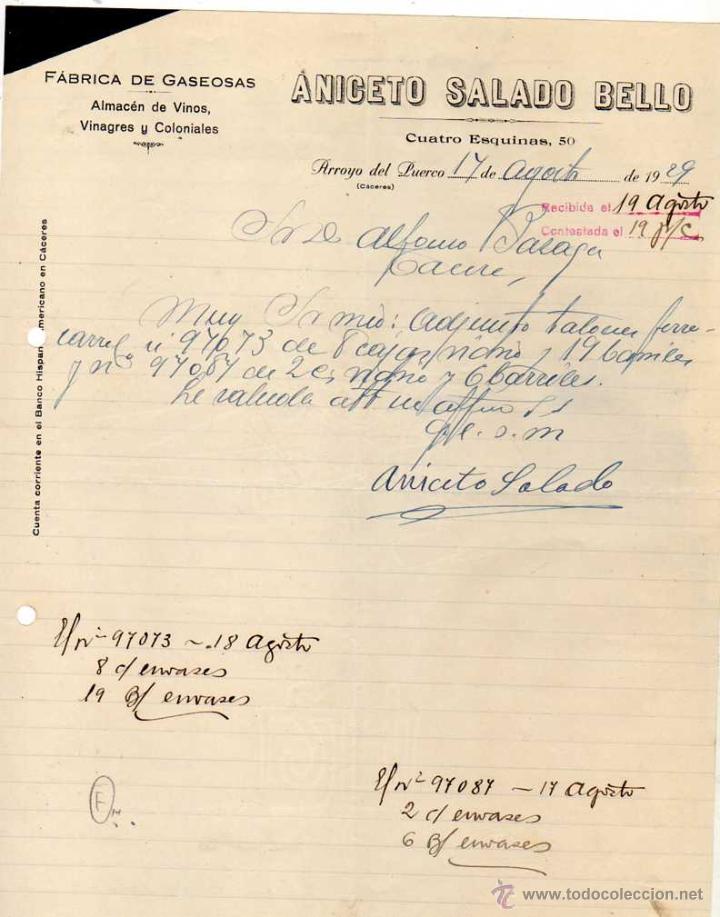 FÁBRICA DE GASEOSAS
Almacén de Vinos,
Vinagres y Coloniales
ANICETO SALADO BELLO
Cuatro Esquinas, 50
Arroyo del Puerco 17 de Agosto de 1929
(Cáceres)
Recibida el 19 Agosto
Contestada el 19 p/c
Sr D Alfonso
Muy Sr mio: Adjunto talones ferro
carril nº 97073 de 8 cajas vidrio y 19 barriles
y nº 97087 de 2 cs vidrio y 6 barriles.
Le saluda att su affmo ss
q. e. s. m
Aniceto Salado
Cuenta corriente en el Banco Hispano Americano en Cáceres
E/ nº 97073 - 18 Agosto
8 c/ envases
19 B/ envases
E/ nº 97087 - 17 Agosto
2 c/ envases
6 B/ envases
F
www.todocoleccion.net